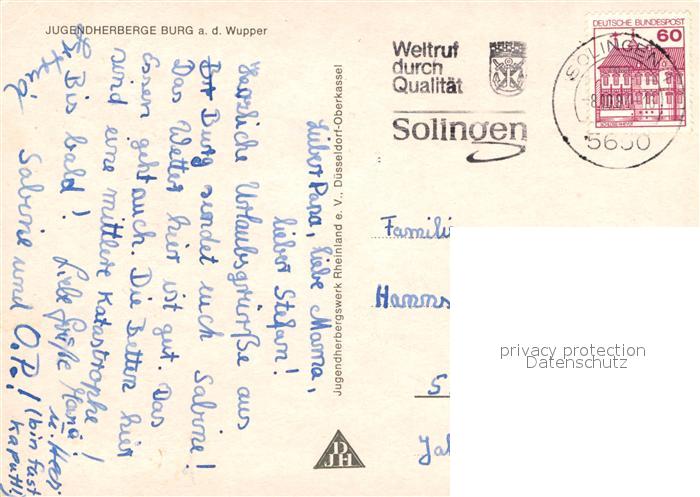 JUGENDHERBERGE BURG a. d. Wupper
Lieber Papa, liebe Mama,
lieber Stefan!
Herzliche Urlaubsgrüße aus
Burg sendet euch Sabine!
Das Wetter hier ist gut. Das
Essen geht auch. Die Betten hier
sind eine mittlere Katastrophe!
Bis bald! Liebe Grüße
Sabine und O.P.! (bin fast
kaputt!)
Jugendherbergswerk Rheinland e. V., Düsseldorf-Oberkassel
DJH
Weltruf
durch
Qualität
Solingen
DEUTSCHE BUNDESPOST
60
SOLINGEN
5650
Famili
privacy protection
Datenschutz